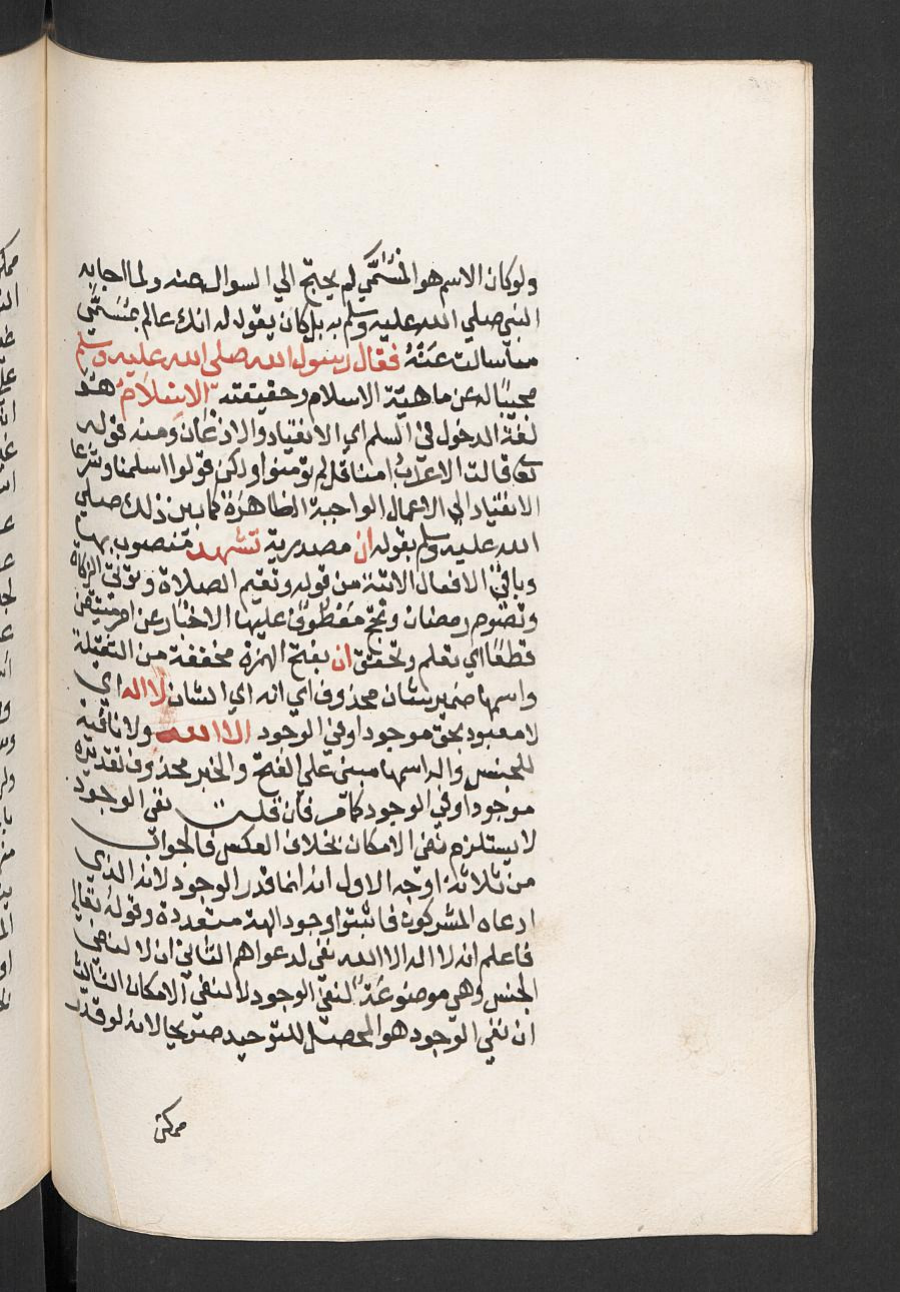 ولو كان الاسم هو المُسَمَّي لم يحتج الي السوال عنه ولما اجابه
النبي صلي الله عليه وسلم به بل كان يقول له انك عالم بمُسَمَّي
ما سالت عَنْهُ فقال رسول الله صلي الله عليه وسلم
مجيبًا له عن ماهيّة الاسلام وحقيقته الاِسْلَامُ هُوَ
لغة الدخول في السلم اي الانقياد والاذعان ومنه قوله
تعالي قالت الاعراب امنا قل لم تومنوا ولكن قولوا اسلمنا وشرعا
الانقياد الي الاعمال الواجبة الظاهرة كما بين ذلك صلي
الله عليه وسلم بقوله ان مصدرية تشهد منصوب بها
وباقي الافعال الاتية من قوله وتقيم الصلاة وتوتي الزكاة
وتصوم رمضان وتحج معطوف عليها الاخبار عن امر متيقن
قطعًا اي تعلم وتحقق ان بفتح الهمزة مخففة من الثقيلة
واسمها ضمير شان محذوف اي انه اي الشان لا اله اي
لا معبود بحق موجود او في الوجود الا الله ولا نافية
للجنس واله اسمها مبني علي الفتح والخبر محذوف تقديره
موجود او في الوجود كما مر فان قلت نفي الوجود
لا يستلزم نفي الامكان بخلاف العكس فالجواب
من ثلاثة اوجه الاول انه انما قدر الوجود لانه الذي
ادعاه المشركون فاثبتوا وجود الهة متعددة وقوله تعالي
فاعلم انه لا اله الا الله نفي لدعواهم الثاني ان لا لنفي
الجنس وهي موضوعة لنفي الوجود لا لنفي الامكان الثالث
ان نفي الوجود هو المحصل للتوحيد صريحا لانه لو قدر
ممكن